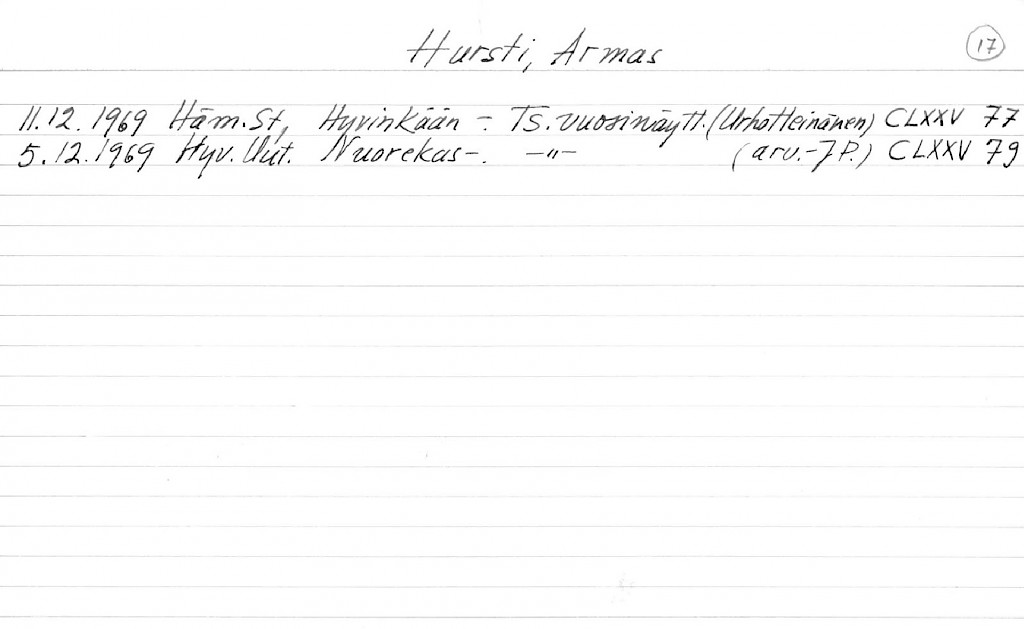 Hursti, Armas
17
11.12.1969 Häm.St, Hyvinkään - Ts. vuosinäytt. (Urho Heinänen) CLXXV 77
5.12.1969 Hyv. Uut. Nuorekas -. -"- (arv. - JP.) CLXXV 79